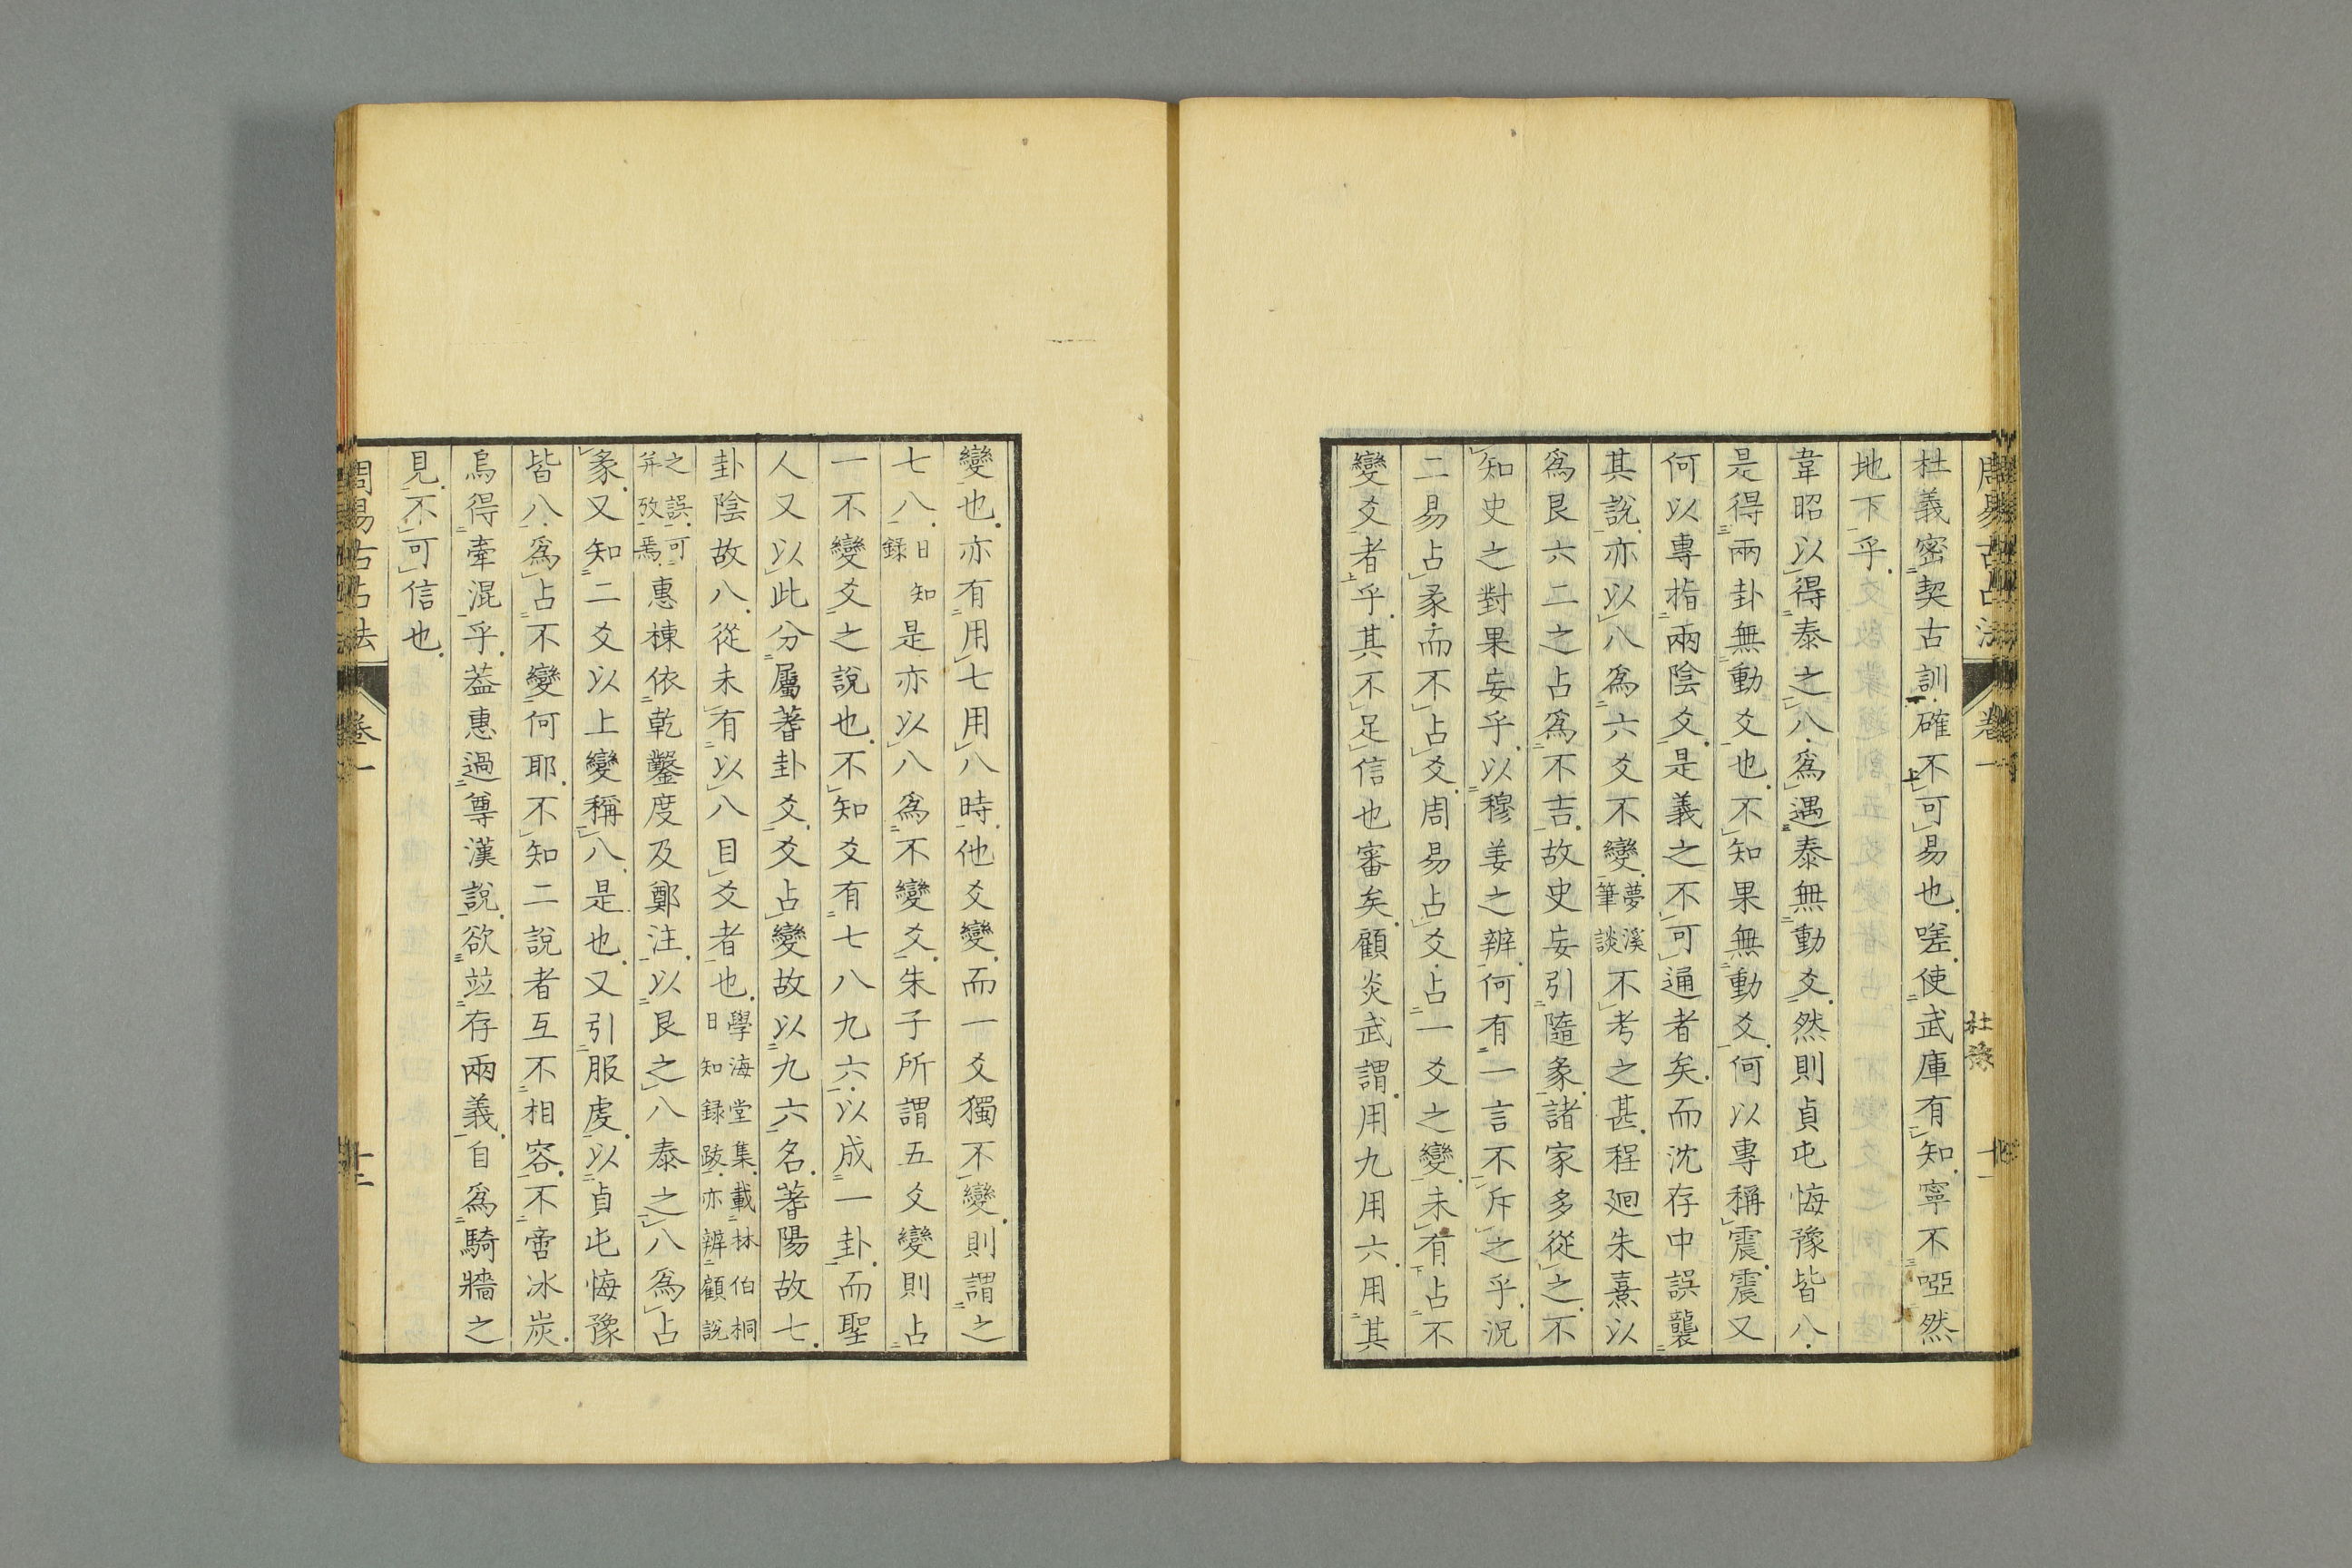 周易古占法 卷一 十一
杜豫
杜義密契古訓確不可易也嗟使武庫有知寧不啞然
地下乎
韋昭以得泰之八爲遇泰無動爻然則貞屯悔豫皆八
是得兩卦無動爻也不知果無動爻何以專稱震震又
何以專指兩陰爻是義之不可通者矣而沈存中誤襲
其說亦以八爲六爻不變夢溪筆談不考之甚程迥朱熹以
爲艮六二之占爲不吉故史妄引隨彖諸家多從之不
知史之對果妄乎以穆姜之辨何有一言不斥之乎況
二易占彖而不占爻周易占爻占一爻之變未有占不
變爻者乎其不足信也審矣顧炎武謂用九用六用其
變也亦有用七用八時他爻變而一爻獨不變則謂之
七八日知錄是亦以八爲不變爻朱子所謂五爻變則占
一不變爻之說也不知爻有七八九六以成一卦而聖
人又以此分屬蓍卦爻爻占變故以九六名蓍陽故七
卦陰故八從未有以八目爻者也學海堂集載林伯桐日知錄跋亦辨顧說
之誤可并攷焉惠棟依乾鑿度及鄭注以艮之八泰之八爲占
彖又知二爻以上變稱八是也又引服虔以貞屯悔豫
皆八爲占不變何耶不知二說者互不相容不啻冰炭
烏得牽混乎蓋惠過尊漢說欲竝存兩義自爲騎牆之
見不可信也
周易古占法 卷一 十二